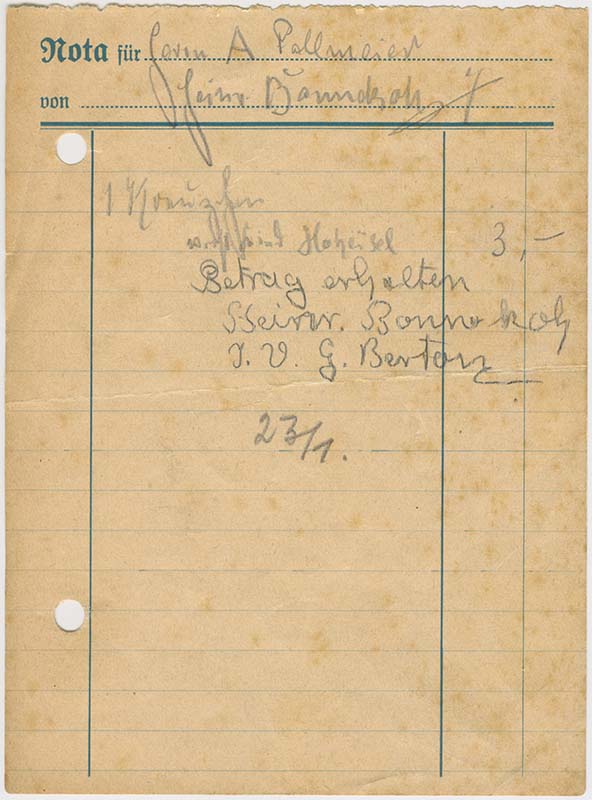 Nota für Herrn A Pollmeier
von Heinr. Bonnekoh
1
Hoheisel 3,-
Betrag erhalten
Heinr. Bonnekoh
I. V. G. Bertany
23/1.